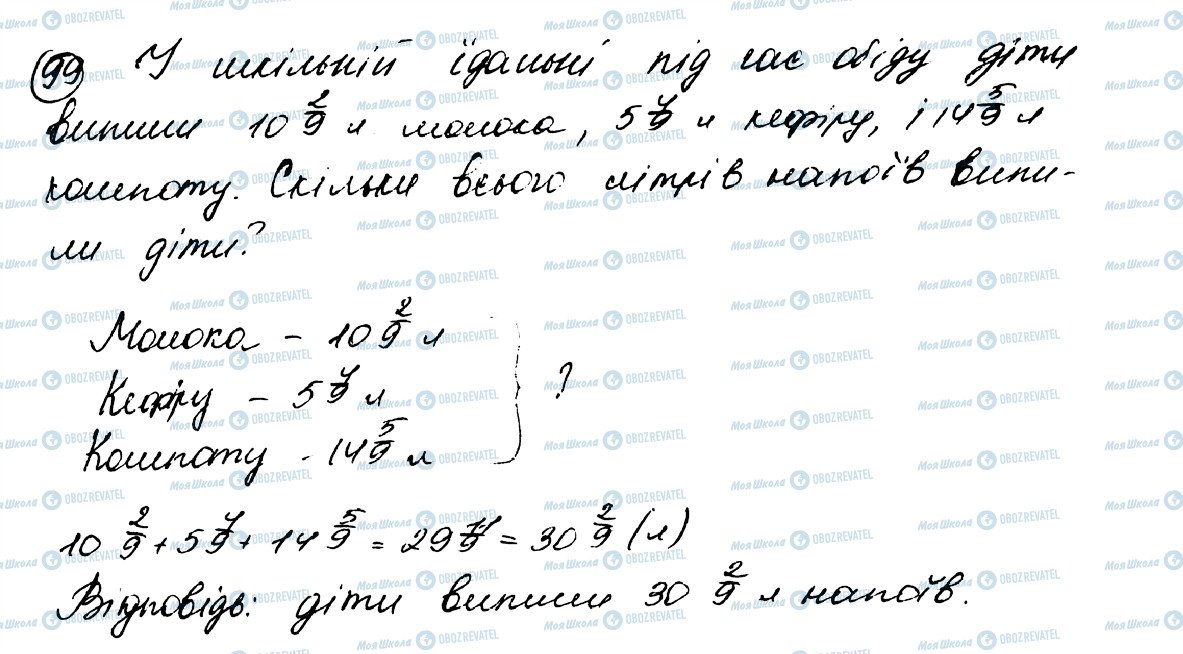 99 У шкільній їдальні під час обіду діти
випили 10 2/9 л молока, 5 4/9 л кефіру, і 14 5/9 л
компоту. Скільки всього літрів напоїв випи-
ли діти?
Молока - 10 2/9 л
Кефіру - 5 4/9 л
?
Компоту - 14 5/9 л
10 2/9 + 5 4/9 + 14 5/9 = 29 11/9 = 30 2/9 (л)
Відповідь: діти випили 30 2/9 л напоїв.